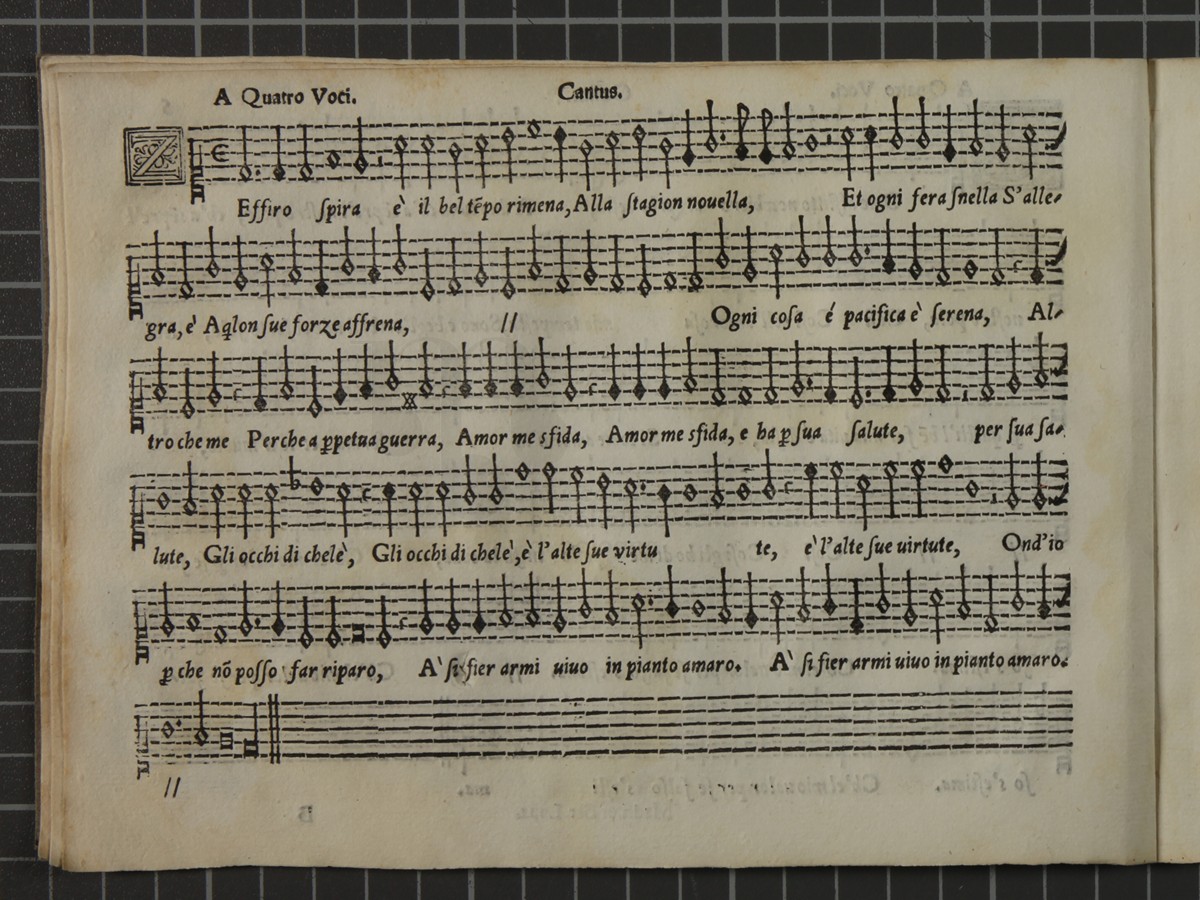 A Quatro Voci. Cantus.
ZEffiro ſpira è il bel tẽpo rimena, Alla ſtagion nouella, Et ogni fera ſnella S'alle-
gra, e' Aqlon ſue forze affrena, // Ogni coſa é pacifica è ſerena, Al-
tro che me Perche a ꝑpetua guerra, Amor me sfida, Amor me sfida, e ha ꝑ ſua ſalute, per ſua ſa-
lute, Gli occhi di chelè, Gli occhi di chelè, è l'alte ſue virtu te, e' l'alte ſue uirtute, Ond'io
ꝑ che nõ poſſo far riparo, A' ſi fier armi uiuo in pianto amaro. A' ſi fier armi uiuo in pianto amaro.
//